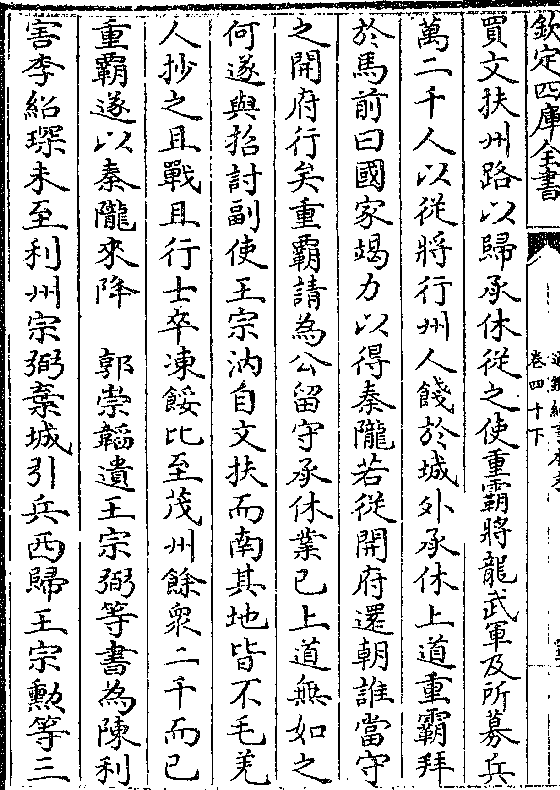 欽定四庫全書
卷四十下
買文扶州路以歸承休從之使重霸將龍武軍及所募兵
萬二千人以從將行州人餞於城外承休上道重霸拜
於馬前曰國家竭力以得秦隴若從開府還朝誰當守
之開府行矣重霸請為公留守承休業已上道無如之
何遂與招討副使王宗汭自文扶而南其地皆不毛羌
人抄之且戰且行士卒凍餒比至茂州餘衆二千而已
重霸遂以秦隴來降　郭崇韜遺王宗弼等書為陳利
害李紹琛未至利州宗弼棄城引兵西歸王宗勳等三